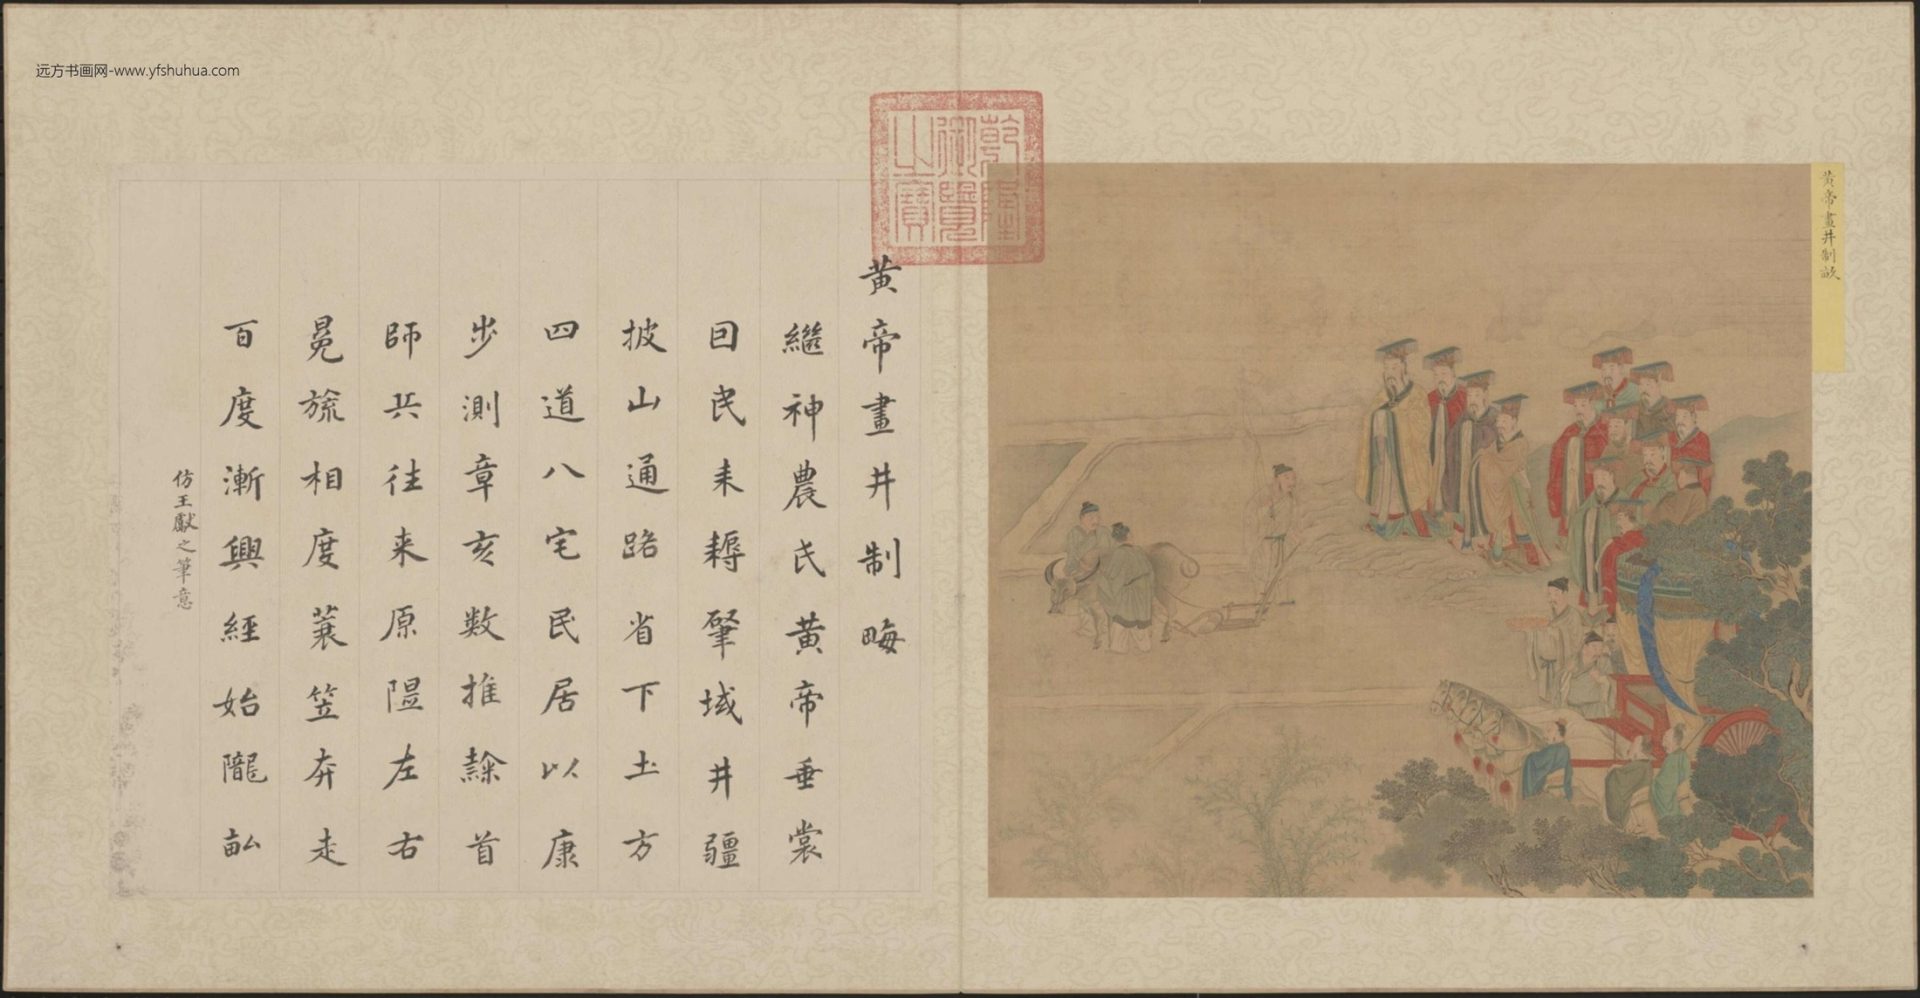 远方书画网-www.yfshuhua.com
黄帝畫井制畝
乾隆
御覽
之寶
黄帝畫井制畮
繼神農氏黄帝垂裳
回民耒耨肇域井疆
披山通路省下土方
四道八宅民居以康
步測章亥数推隸首
師兵往来原隰左右
冕旒相度蓑笠奔走
百度漸興經始隴畝
仿王獻之筆意